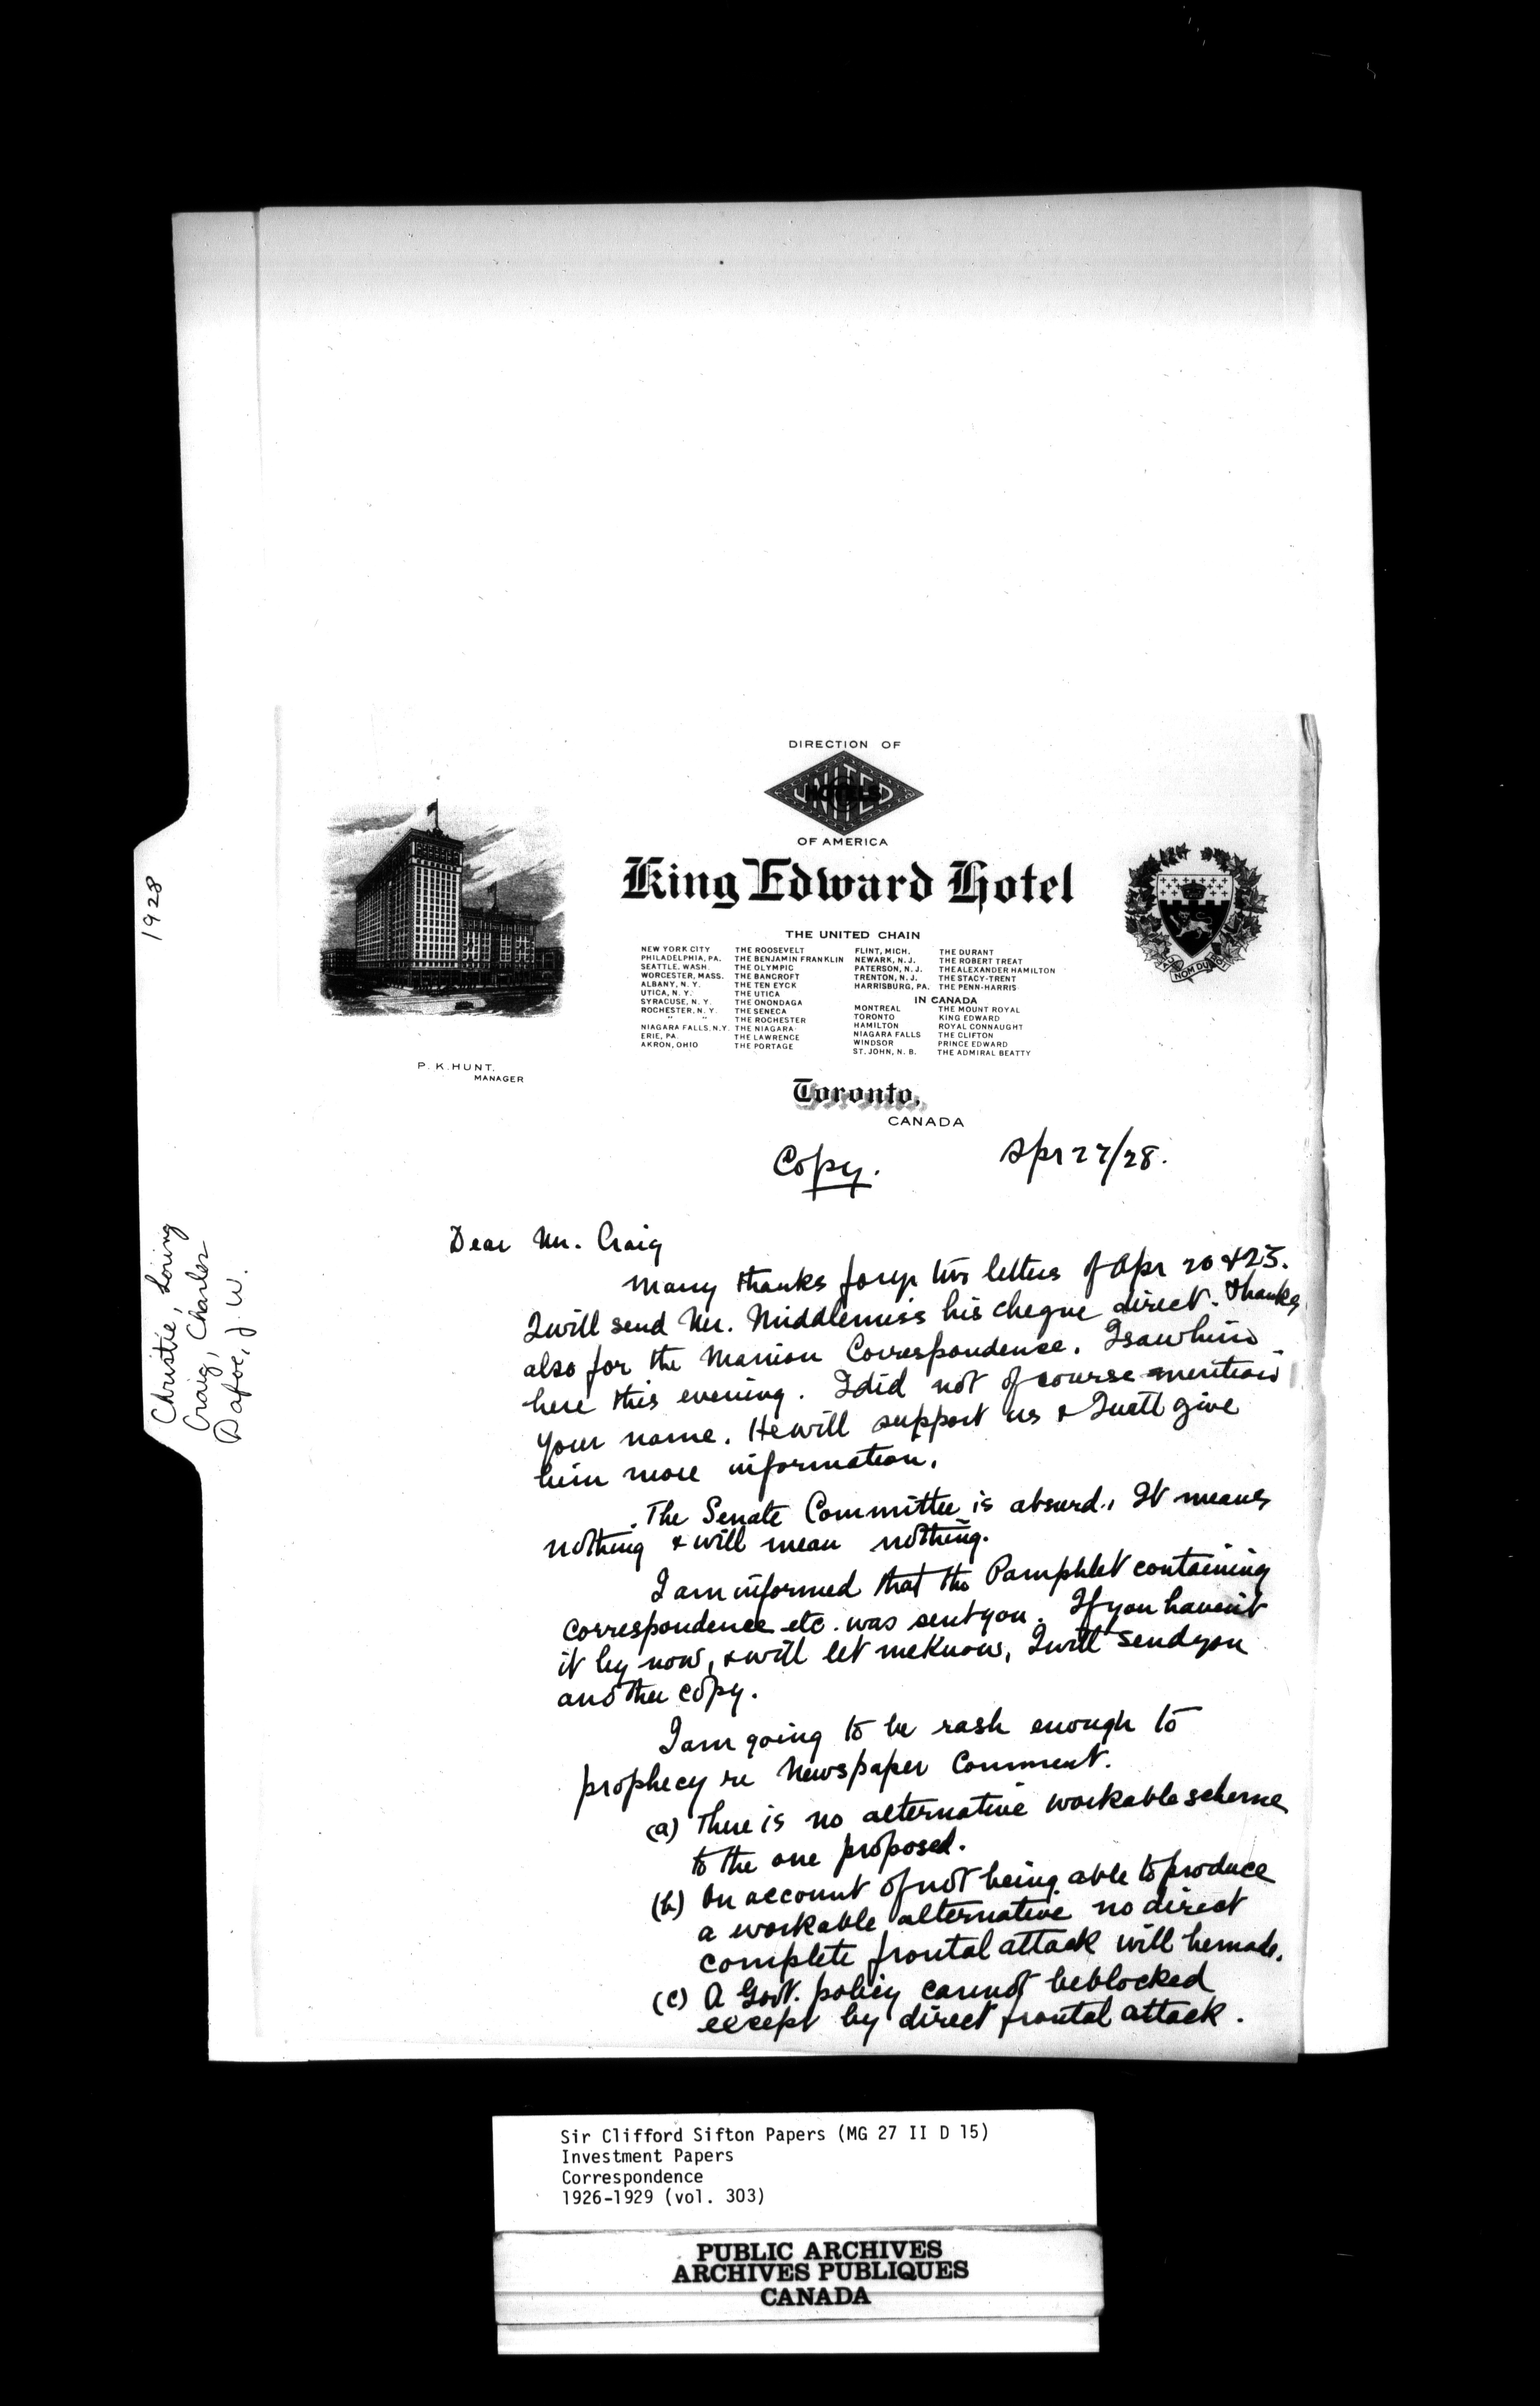 1928
Christie, Loring
Craig, Charles
Dafoe, J. W.
DIRECTION OF
UNITED
HOTELS
OF AMERICA
King Edward Hotel
THE UNITED CHAIN
NEW YORK CITY THE ROOSEVELT
PHILADELPHIA, PA. THE BENJAMIN FRANKLIN
SEATTLE, WASH. THE OLYMPIC
WORCESTER, MASS. THE BANCROFT
ALBANY, N. Y. THE TEN EYCK
UTICA, N. Y. THE UTICA
SYRACUSE, N. Y. THE ONONDAGA
ROCHESTER, N. Y. THE SENECA
" " THE ROCHESTER
NIAGARA FALLS, N.Y. THE NIAGARA
ERIE, PA. THE LAWRENCE
AKRON, OHIO THE PORTAGE
FLINT, MICH. THE DURANT
NEWARK, N. J. THE ROBERT TREAT
PATERSON, N. J. THE ALEXANDER HAMILTON
TRENTON, N. J. THE STACY-TRENT
HARRISBURG, PA. THE PENN-HARRIS
IN CANADA
MONTREAL THE MOUNT ROYAL
TORONTO KING EDWARD
HAMILTON ROYAL CONNAUGHT
NIAGARA FALLS THE CLIFTON
WINDSOR PRINCE EDWARD
ST. JOHN, N. B. THE ADMIRAL BEATTY
P. K. HUNT.
MANAGER
Toronto,
CANADA
Copy. Apr 27/28.
Dear Mr. Craig
Many thanks for yr two letters of Apr 20 & 25.
I will send Mr. Middlemiss his cheque direct. Thanks
also for the Manion Correspondence. I saw him
here this evening. I did not of course mention
your name. He will support us & I will give
him more information.
The Senate Committee is absurd. It means
nothing & will mean nothing.
I am informed that the Pamphlet containing
correspondence etc. was sent you. If you haven't
it by now, & will let me know, I will send you
another copy.
I am going to be rash enough to
prophecy re Newspaper Comment.
(a) There is no alternative workable scheme
to the one proposed.
(b) On account of not being able to produce
a workable alternative no direct
complete frontal attack will be made.
(c) A Govt. policy cannot be blocked
except by direct frontal attack.
Sir Clifford Sifton Papers (MG 27 II D 15)
Investment Papers
Correspondence
1926-1929 (vol. 303)
PUBLIC ARCHIVES
ARCHIVES PUBLIQUES
CANADA